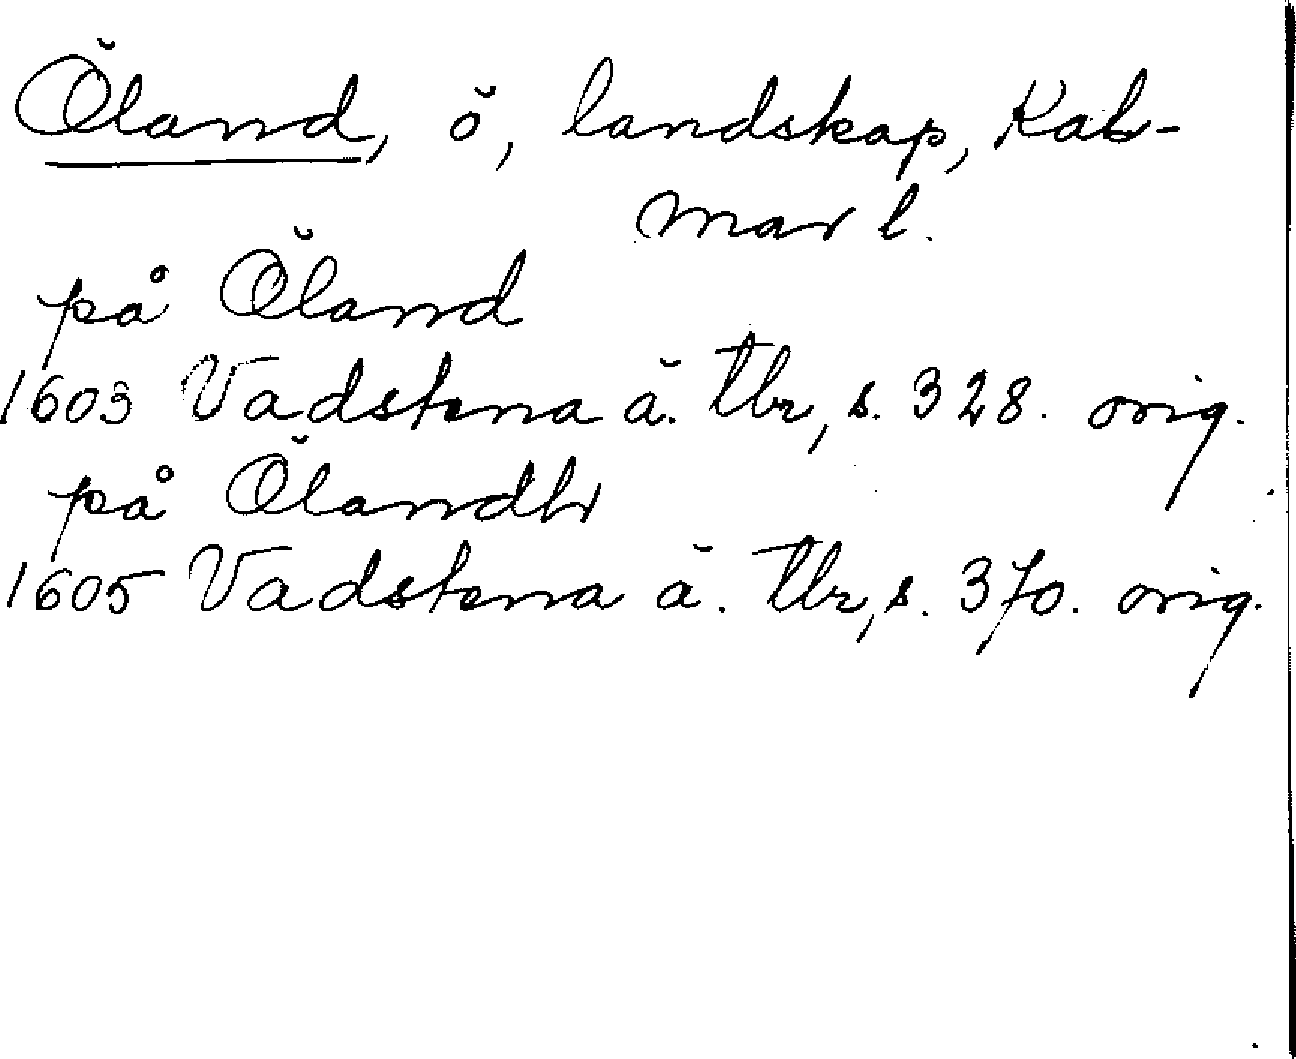 Öland, ö, landskap, Kal-
mar l.
på Öland
1603 Vadstena ä. tbr, s. 328. orig.
på Ölandh
1605 Vadstena ä. tbr, s. 370. orig.